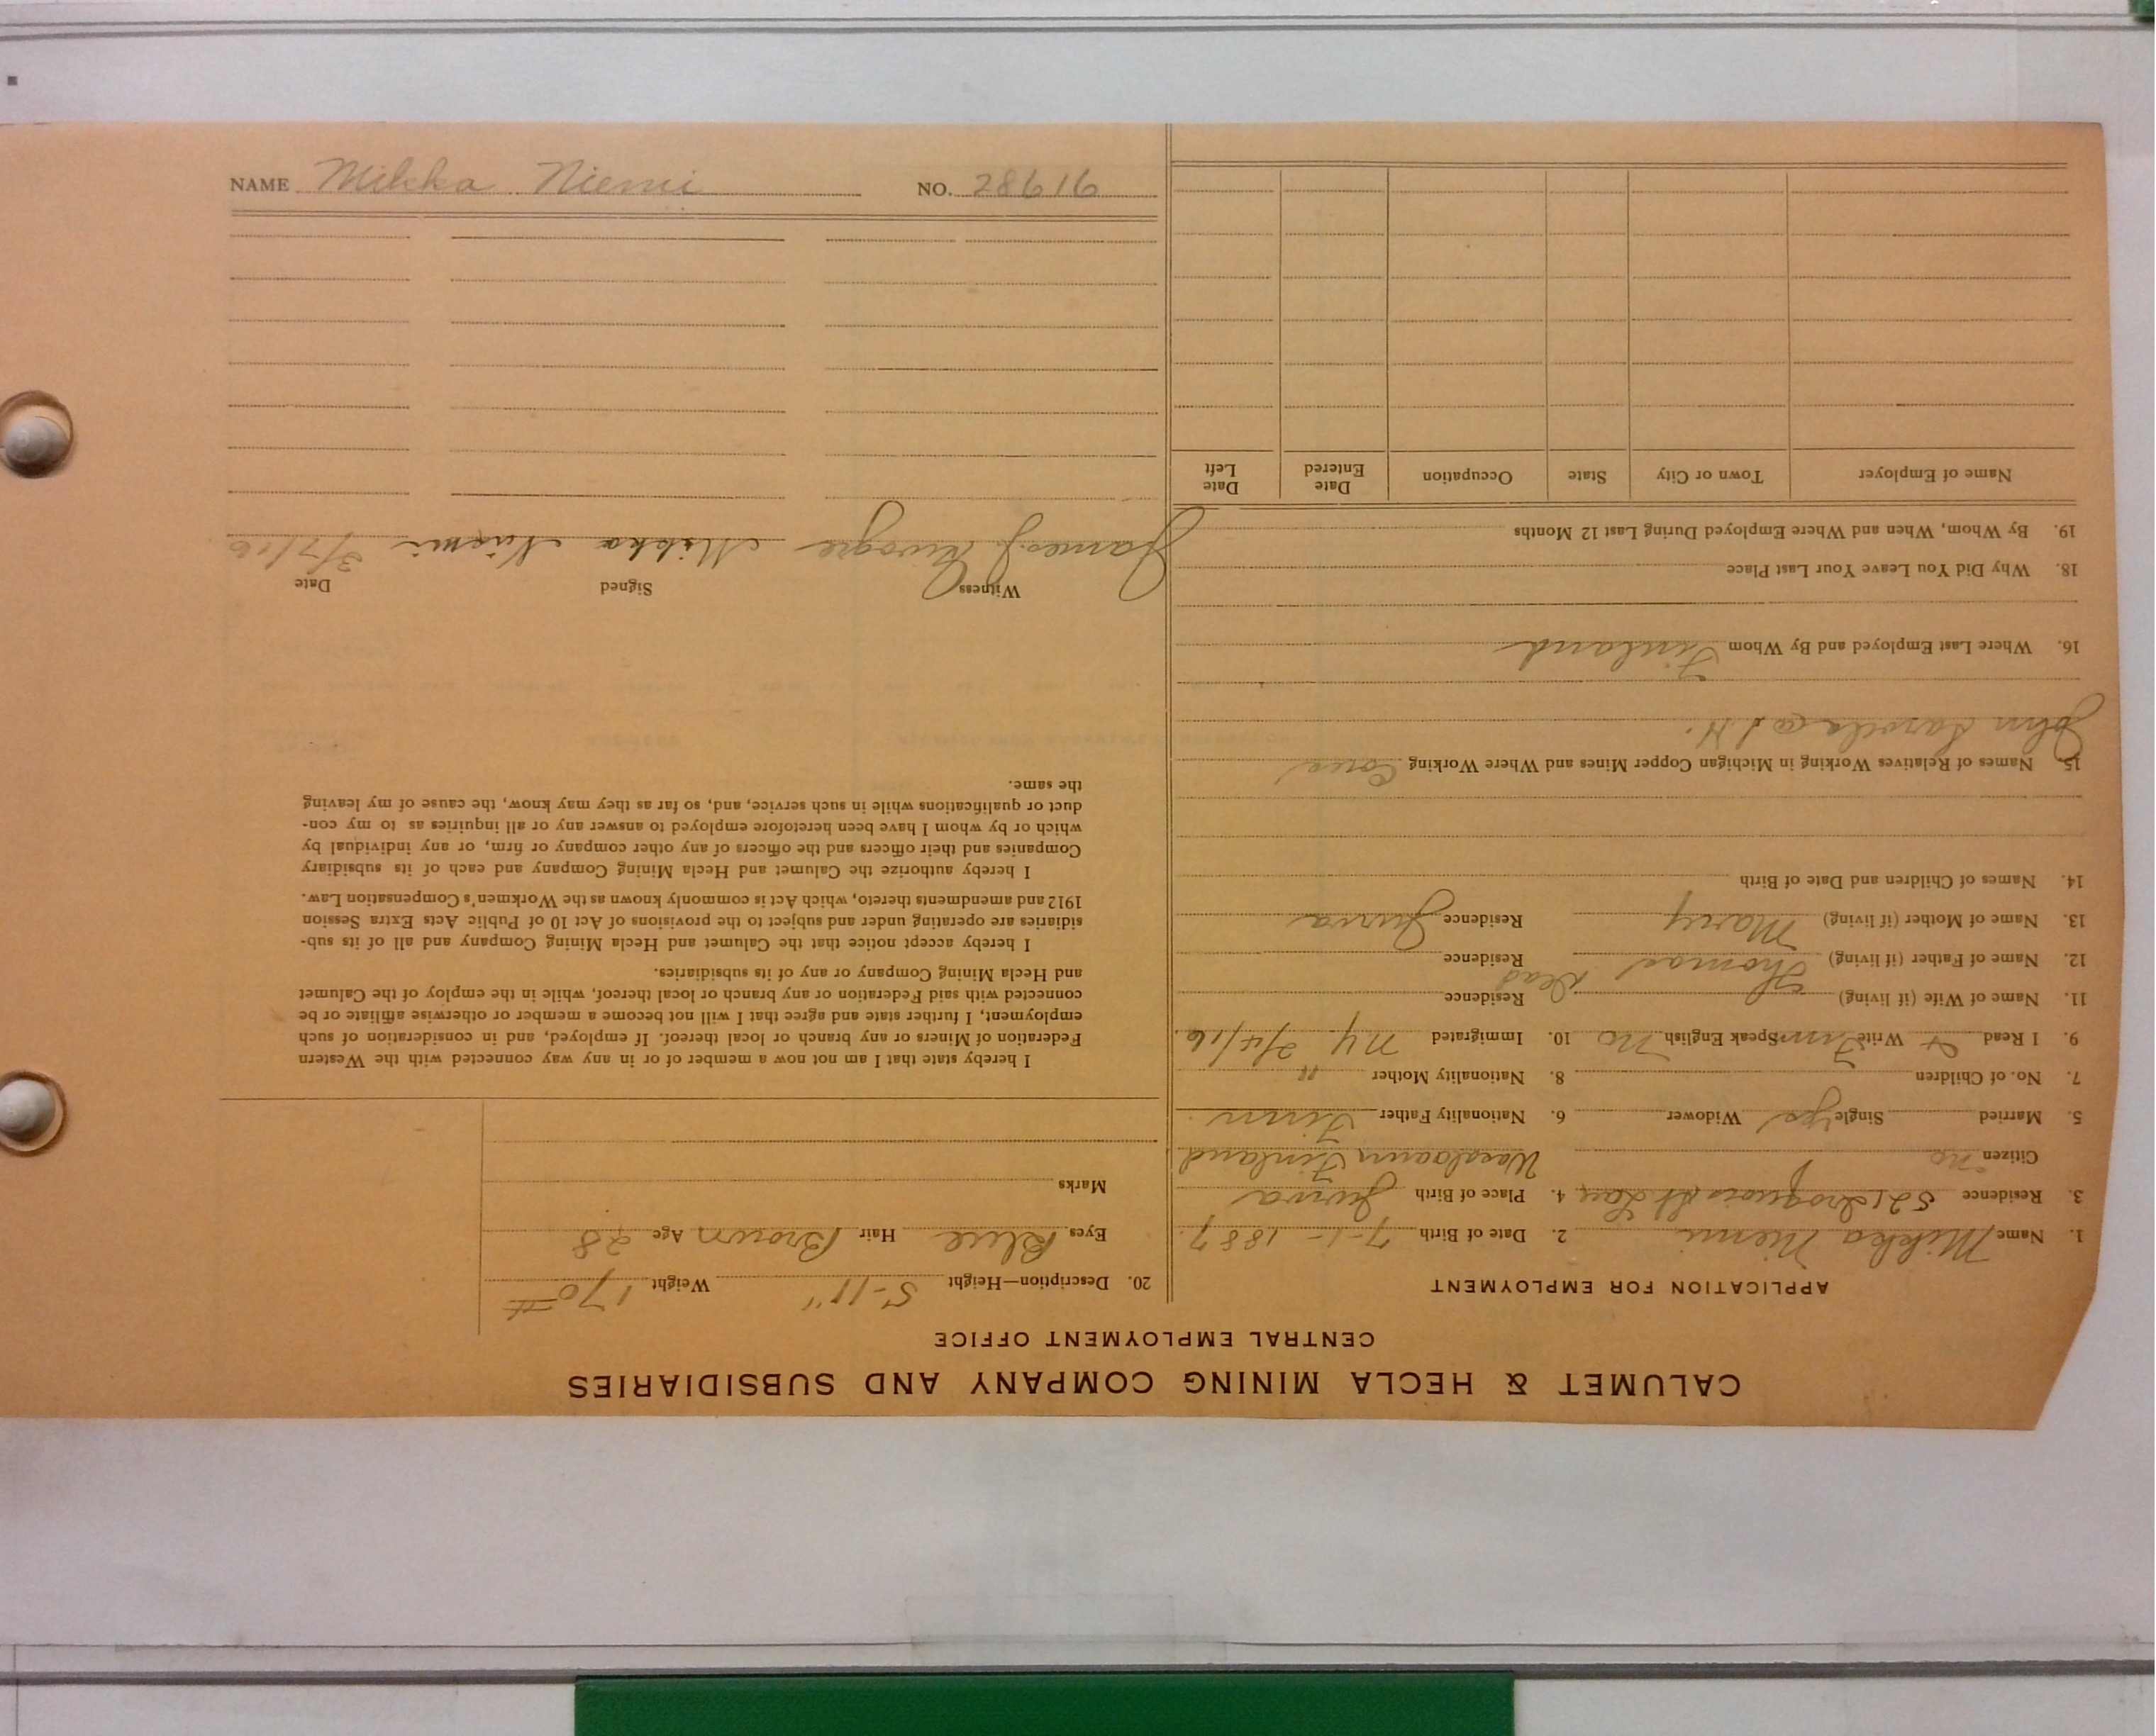 NAME Mikka Niemi NO. 28616
CALUMET & HECLA MINING COMPANY AND SUBSIDIARIES
CENTRAL EMPLOYMENT OFFICE
APPLICATION FOR EMPLOYMENT
1. Name Mikka Niemi 2. Date of Birth 7-1-1887
3. Residence 521 Iroquois St Lau 4. Place of Birth Jurva
Citizen no Finland
5. Married Single yes Widower 6. Nationality Father Finn
7. No. of Children 8. Nationality Mother "
9. I Read & Write Finn Speak English no 10. Immigrated NY 2/4/16
11. Name of Wife (if living) Residence
12. Name of Father (if living) Thomas Dead Residence
13. Name of Mother (if living) Mary Residence Jurva
14. Names of Children and Date of Birth
15. Names of Relatives Working in Michigan Copper Mines and Where Working
John
16. Where Last Employed and By Whom Finland
18. Why Did You Leave Your Last Place
19. By Whom, When and Where Employed During Last 12 Months
Name of Employer Town or City State Occupation Date Entered Date Left
20. Description—Height 5-11" Weight 170#
Eyes Blue Hair Brown Age 28
Marks
I hereby state that I am not now a member of or in any way connected with the Western
Federation of Miners or any branch or local thereof. If employed, and in consideration of such
employment, I further state and agree that I will not become a member or otherwise affiliate or be
connected with said Federation or any branch or local thereof, while in the employ of the Calumet
and Hecla Mining Company or any of its subsidiaries.
I hereby accept notice that the Calumet and Hecla Mining Company and all of its sub-
sidiaries are operating under and subject to the provisions of Act 10 of Public Acts Extra Session
1912 and amendments thereto, which Act is commonly known as the Workmen's Compensation Law.
I hereby authorize the Calumet and Hecla Mining Company and each of its subsidiary
Companies and their officers and the officers of any other company or firm, or any individual by
which or by whom I have been heretofore employed to answer any or all inquiries as to my con-
duct or qualifications while in such service, and, so far as they may know, the cause of my leaving
the same.
Witness Signed Date
James J. Mikka Niemi 3/7/16